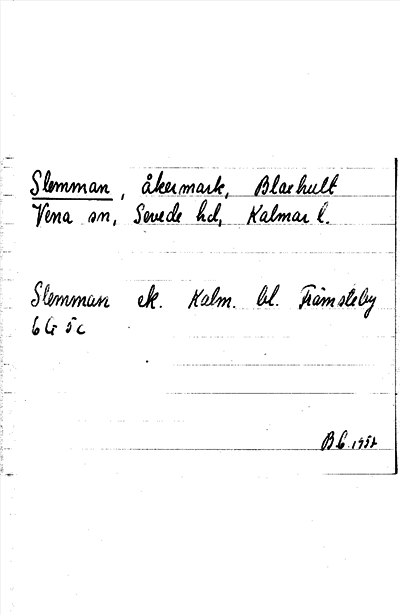 Slemman, åkermark, Blaehult
Vena sn, Sevede hd, Kalmar l.
Slemman ek. Kalm. bl. Främsteby
6 G 5 c
B G 1952